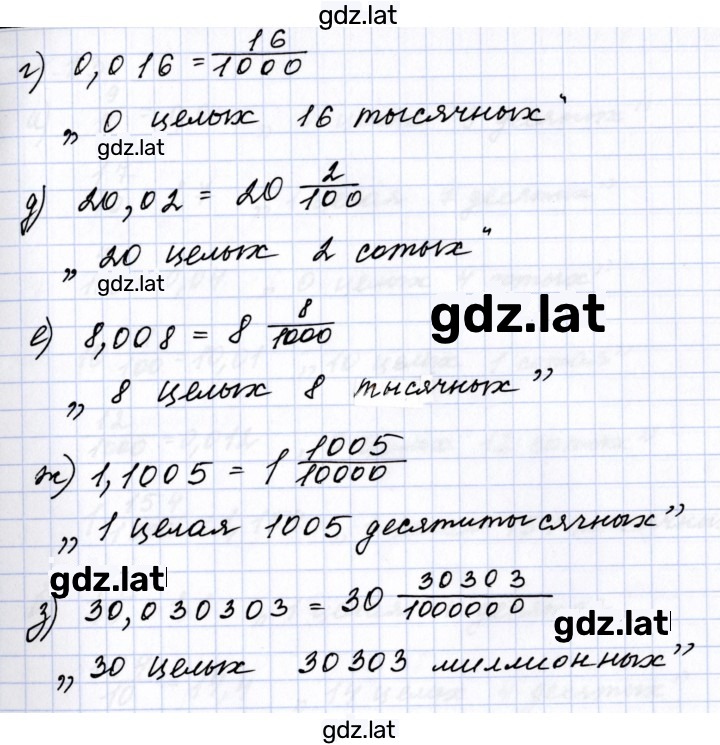 gdz.lat
г) 0,016 = 16/1000
„ 0 целых 16 тысячных“
gdz.lat
д) 20,02 = 20 2/100
„ 20 целых 2 сотых“
gdz.lat
е) 8,008 = 8 8/1000
gdz.lat
„ 8 целых 8 тысячных”
ж) 1,1005 = 1 1005/10000
„ 1 целая 1005 десятитысячных”
gdz.lat
з) 30,030303 = 30 30303/1000000
gdz.lat
„ 30 целых 30303 миллионных”
gdz.lat